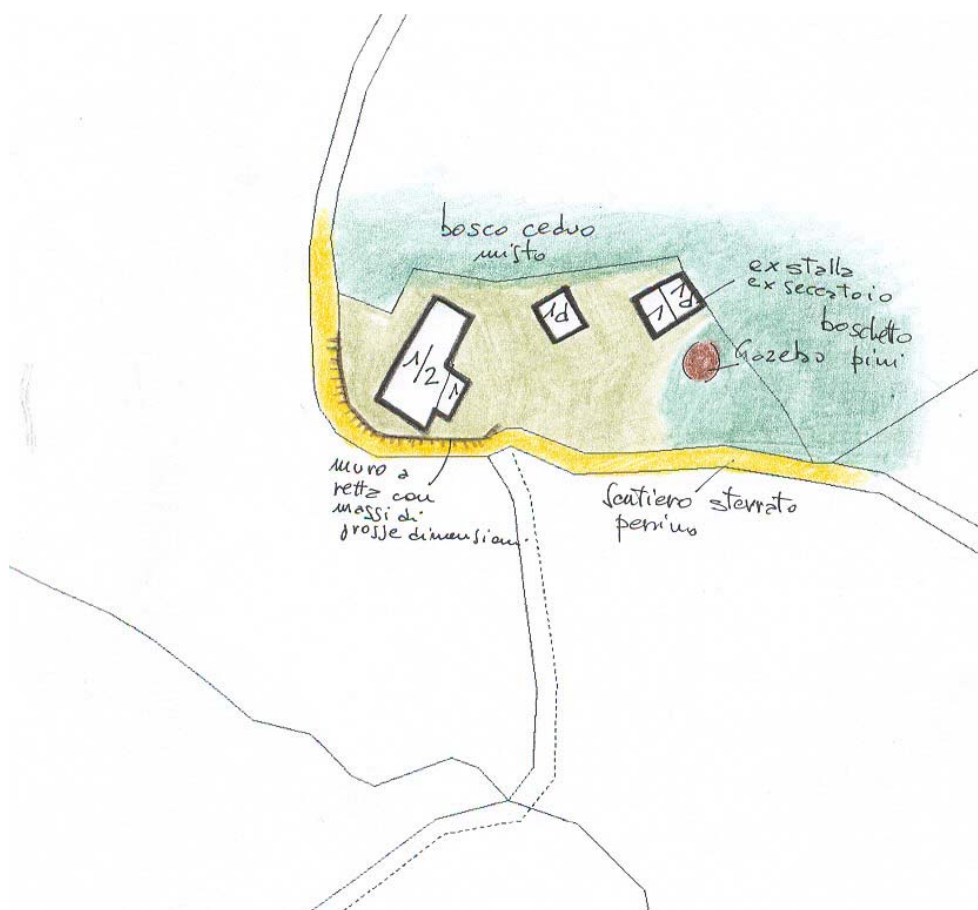 bosco ceduo
misto
ex stalla
ex seccatoio
boschetto
pini
Gazebo
1/2
1
1d
1
1d
muro a
retta con
massi di
grosse dimensioni
sentiero sterrato